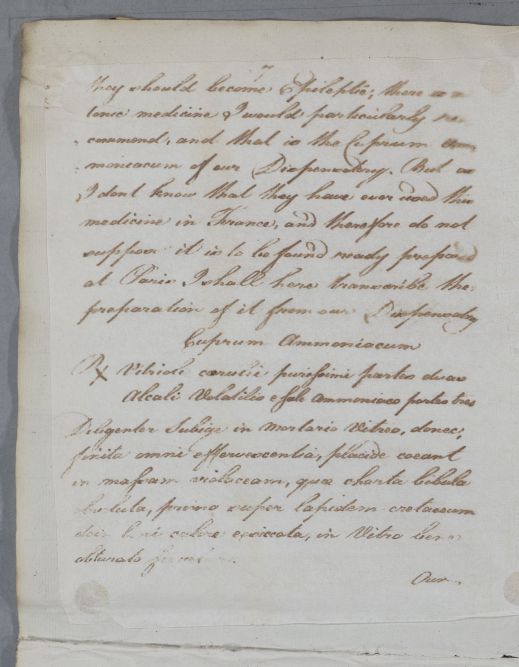 they should become Epileptic; there is
one medicine I would particularly re
commend, and that is the Cuprum Am
moniacum of our Dispensatory. But as
I dont know that they have ever used this
medicine in France, and therefore do not
suppose it is to be found ready prepared
at Paris I shall here transcribe the
preparation of it from our Dispensatory
Cuprum Ammoniacum
℞ Vitrioli cærulii purissimi partes duas
Alcali Volatilis e Sale Ammoniaco partes tres
Diligenter Subige in mortario Vitreo, donec,
finita omni effervescentia, placide coeant
in massam violaceam, quæ charta bibula
obvoluta, primo super lapidem cretaceum
dein leni calore exsiccata, in Vitro bene
obturato
Our